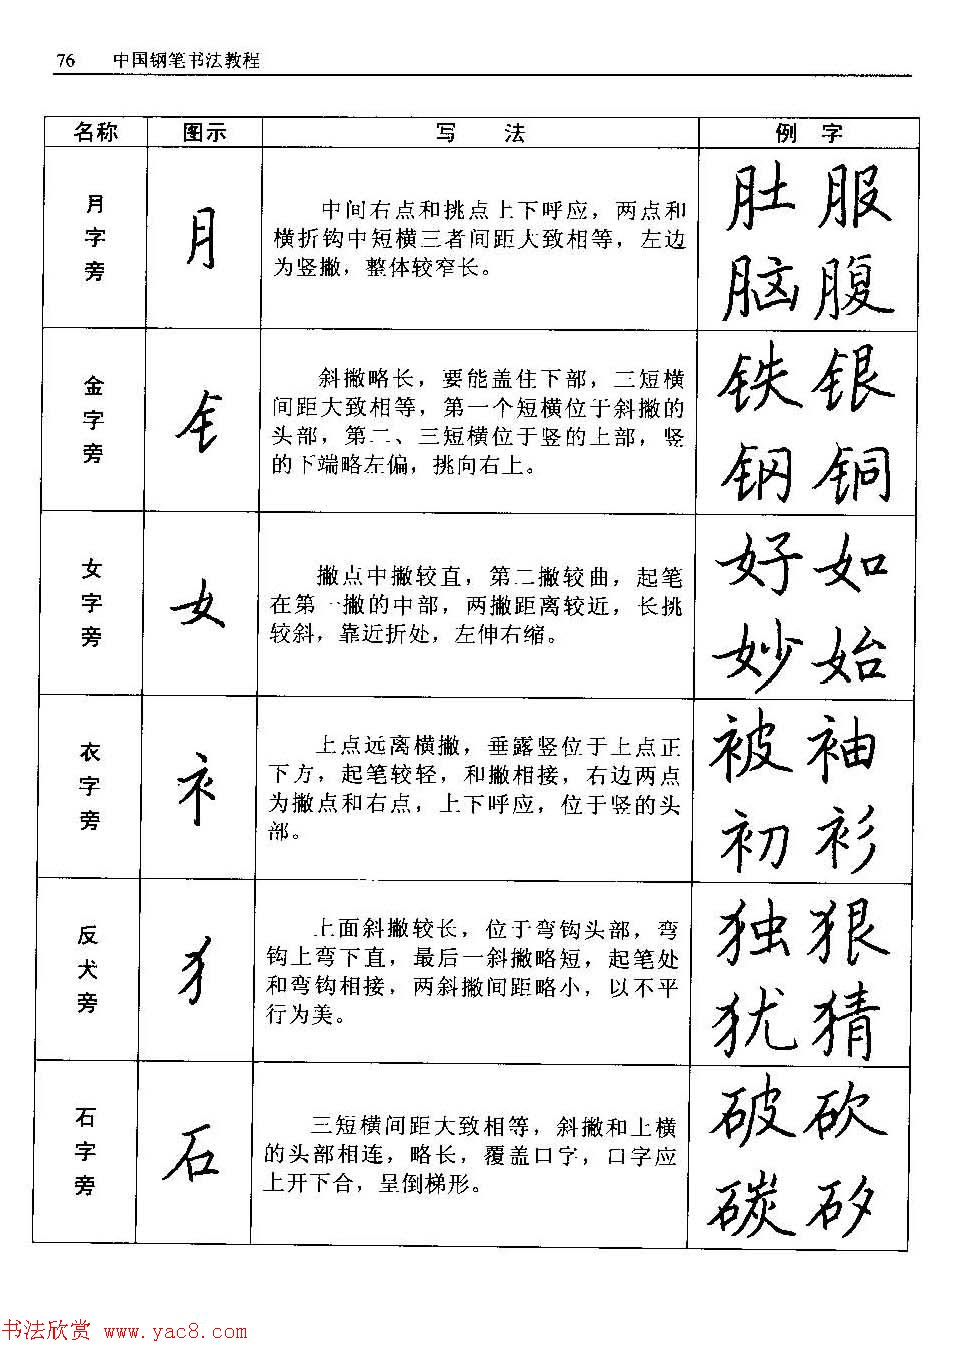 76 中国钢笔书法教程
名称 图示 写 法 例 字
月字旁
月
中间右点和挑点上下呼应，两点和
横折钩中短横三者间距大致相等，左边
为竖撇，整体较窄长。
肚 服
脑 腹
金字旁
钅
斜撇略长，要能盖住下部，三短横
间距大致相等，第一个短横位于斜撇的
头部，第二、三短横位于竖的上部，竖
的下端略左偏，挑向右上。
铁 银
钢 铜
女字旁
女
撇点中撇较直，第二撇较曲，起笔
在第一撇的中部，两撇距离较近，长挑
较斜，靠近折处，左伸右缩。
好 如
妙 始
衣字旁
衤
上点远离横撇，垂露竖位于上点正
下方，起笔较轻，和撇相接，右边两点
为撇点和右点，上下呼应，位于竖的头
部。
被 袖
初 衫
反犬旁
犭
上面斜撇较长，位于弯钩头部，弯
钩上弯下直，最后一斜撇略短，起笔处
和弯钩相接，两斜撇间距略小，以不平
行为美。
独 狠
犹 猜
石字旁
石
三短横间距大致相等，斜撇和上横
的头部相连，略长，覆盖口字，口字应
上开下合，呈倒梯形。
破 砍
碳 矽
书法欣赏 www.yac8.com